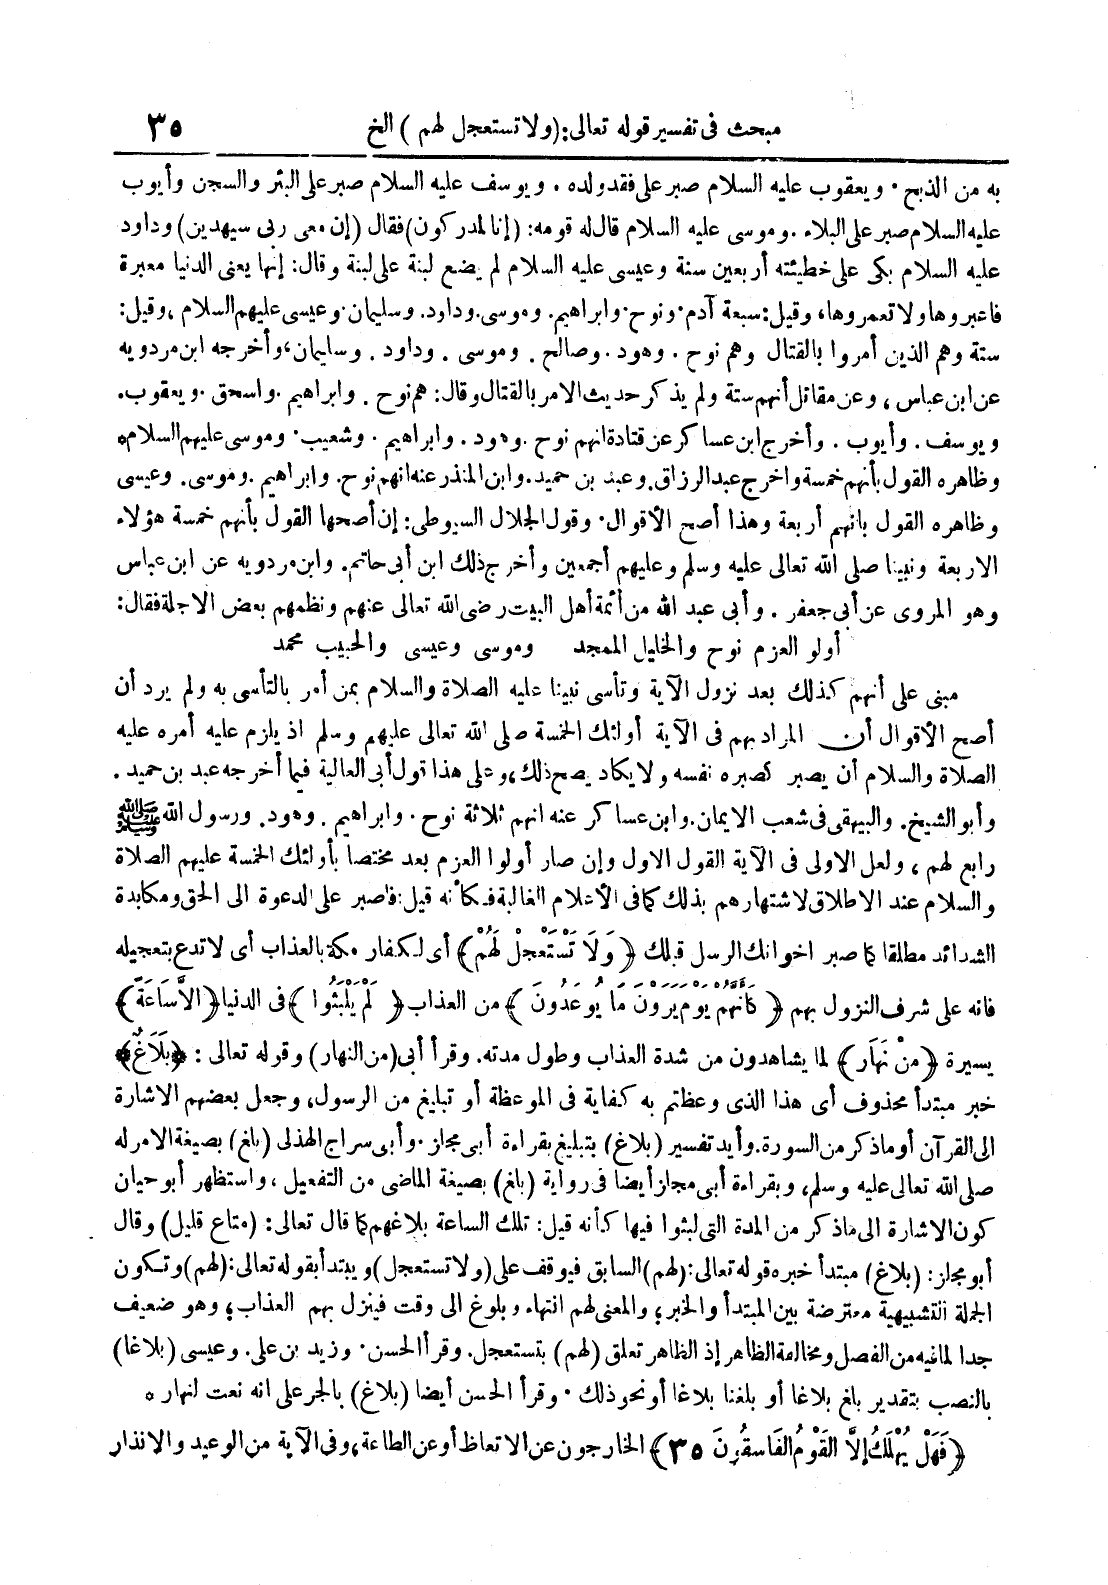 مبحث فى تفسير قوله تعالى: (ولا تستعجل لهم) الخ ٣٥
به من الذبح. ويعقوب عليه السلام صبر على فقد ولده. ويوسف عليه السلام صبر على البئر والسجن وأيوب
عليه السلام صبر على البلاء. وموسى عليه السلام قال له قومه: (إنا لمدركون) فقال (إن معى ربى سيهدين) وداود
عليه السلام بكى على خطيئته أربعين سنة وعيسى عليه السلام لم يضع لبنة على لبنة وقال: إنها يعنى الدنيا معبرة
فاعبروها ولا تعمروها، وقيل: سبعة آدم. ونوح. وابراهيم. وموسى. وداود. وسليمان. وعيسى عليهم السلام، وقيل:
ستة وهم الذين أمروا بالقتال وهم نوح. وهود. وصالح. وموسى. وداود. وسليمان، وأخرجه ابن مردويه
عن ابن عباس، وعن مقاتل أنهم ستة ولم يذكر حديث الامر بالقتال وقال: هم نوح. وابراهيم. واسحق. ويعقوب.
ويوسف. وأيوب. وأخرج ابن عساكر عن قتادة انهم نوح. وهود. وابراهيم. وشعيب. وموسى عليهم السلام *
وظاهره القول بأنهم خمسة واخرج عبد الرزاق. وعبد بن حميد. وابن المنذر عنه انهم نوح. وابراهيم. وموسى. وعيسى
وظاهره القول بانهم أربعة وهذا أصح الأقوال. وقول الجلال السيوطى: إن أصحها القول بأنهم خمسة هؤلاء
الاربعة ونبينا صلى الله تعالى عليه وسلم وعليهم أجمعين وأخرج ذلك ابن أبى حاتم. وابن مردويه عن ابن عباس
وهو المروى عن أبى جعفر. وأبى عبد الله من أئمة أهل البيت رضى الله تعالى عنهم ونظمهم بعض الاجلة فقال:
أولو العزم نوح والخليل الممجد وموسى وعيسى والحبيب محمد
مبنى على أنهم كذلك بعد نزول الآية وتأسى نبينا عليه الصلاة والسلام بمن أمر بالتأسى به ولم يرد أن
أصح الأقوال أن المراد بهم فى الآية أولئك الخمسة صلى الله تعالى عليهم وسلم اذ يلزم عليه أمره عليه
الصلاة والسلام أن يصبر كصبره نفسه ولا يكاد يصح ذلك، وعلى هذا قول أبى العالية فيما أخرجه عبد بن حميد.
وأبو الشيخ. والبيهقى فى شعب الايمان. وابن عساكر عنه انهم ثلاثة نوح. وابراهيم. وهود. ورسول الله ﷺ
رابع لهم، ولعل الاولى فى الآية القول الاول وإن صار أولوا العزم بعد مختصا بأولئك الخمسة عليهم الصلاة
والسلام عند الاطلاق لاشتهارهم بذلك كما فى الأعلام الغالبة فكأنه قيل: فاصبر على الدعوة الى الحق ومكابدة
الشدائد مطلقا كما صبر اخوانك الرسل قبلك ﴿وَلَا تَسْتَعْجِلْ لَهُمْ﴾ أى لكفار مكة بالعذاب أى لا تدع بتعجيله
فانه على شرف النزول بهم ﴿كَأَنَّهُمْ يَوْمَ يَرَوْنَ مَا يُوعَدُونَ﴾ من العذاب ﴿لَمْ يَلْبَثُوا﴾ فى الدنيا ﴿الَّاسَاعَةً﴾
يسيرة ﴿مِنْ نَهَارٍ﴾ لما يشاهدون من شدة العذاب وطول مدته. وقرأ أبى (من النهار) وقوله تعالى: ﴿بَلَاغٌ﴾
خبر مبتدأ محذوف أى هذا الذى وعظتم به كفاية فى الموعظة أو تبليغ من الرسول، وجعل بعضهم الاشارة
الى القرآن أو ما ذكر من السورة. وأيد تفسير (بلاغ) بتبليغ بقراءة أبى مجلز. وأبى سراج الهذلى (بلغ) بصيغة الامر له
صلى الله تعالى عليه وسلم، وبقراءة أبى مجلز أيضا فى رواية (بلغ) بصيغة الماضى من التفعيل، واستظهر أبو حيان
كون الاشارة الى ما ذكر من المدة التى لبثوا فيها كأنه قيل: تلك الساعة بلاغهم كما قال تعالى: (متاع قليل) وقال
أبو مجلز: (بلاغ) مبتدأ خبره قوله تعالى: (لهم) السابق فيوقف على (ولا تستعجل) ويبتدأ بقوله تعالى: (لهم) وتكون
الجملة التشبيهية معترضة بين المبتدأ والخبر، والمعنى لهم انتهاء وبلوغ الى وقت فينزل بهم العذاب، وهو ضعيف
جدا لما فيه من الفصل ومخالفة الظاهر إذ الظاهر تعلق (لهم) بتستعجل. وقرأ الحسن. وزيد بن على. وعيسى (بلاغا)
بالنصب بتقدير بلغ بلاغا أو بلغنا بلاغا أو نحو ذلك. وقرأ الحسن أيضا (بلاغ) بالجر على انه نعت لنهار *
﴿فَهَلْ يُهْلَكُ إِلَّا القَوْمُ الفَاسِقُونَ ٣٥﴾ الخارجون عن الاتعاظ أو عن الطاعة، وفى الآية من الوعيد والانذار